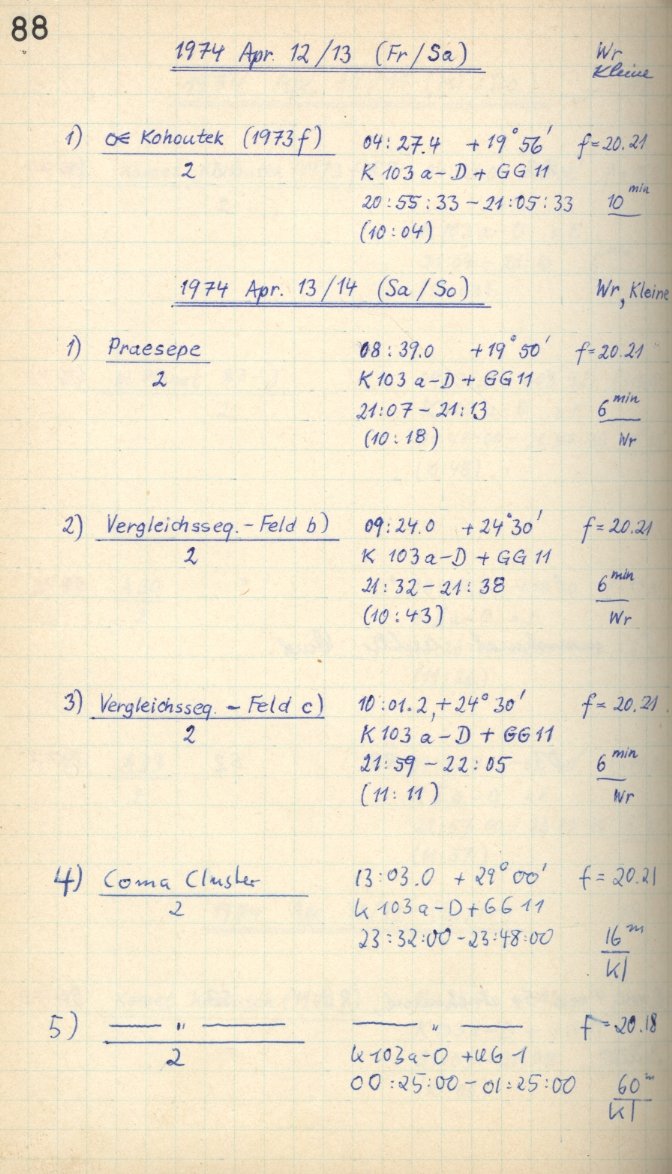 88
1974 Apr. 12/13 (Fr/Sa) Wr
Kleine
1) ☄ Kohoutek (1973f) 04:27.4 +19°56' f=20.21
2 K 103 a-D + GG 11
20:55:33 - 21:05:33 10 min
(10:04)
1974 Apr. 13/14 (Sa/So) Wr, Kleine
1) Praesepe 08:39.0 +19°50' f=20.21
2 K 103 a-D + GG 11
21:07 - 21:13 6 min
(10:18) Wr
2) Vergleichsseq. - Feld b) 09:24.0 +24°30' f=20.21
2 K 103 a-D + GG 11
21:32 - 21:38 6 min
(10:43) Wr
3) Vergleichsseq. - Feld c) 10:01.2, +24°30' f=20.21
2 K 103 a-D + GG 11
21:59 - 22:05 6 min
(11:11) Wr
4) Coma Cluster 13:03.0 +29°00' f=20.21
2 K 103 a-D + GG 11
23:32:00 - 23:48:00 16 m
Kl
5) — " — — " — f=20.18
2 K 103a-O + UG 1
00:25:00 - 01:25:00 60 m
Kl